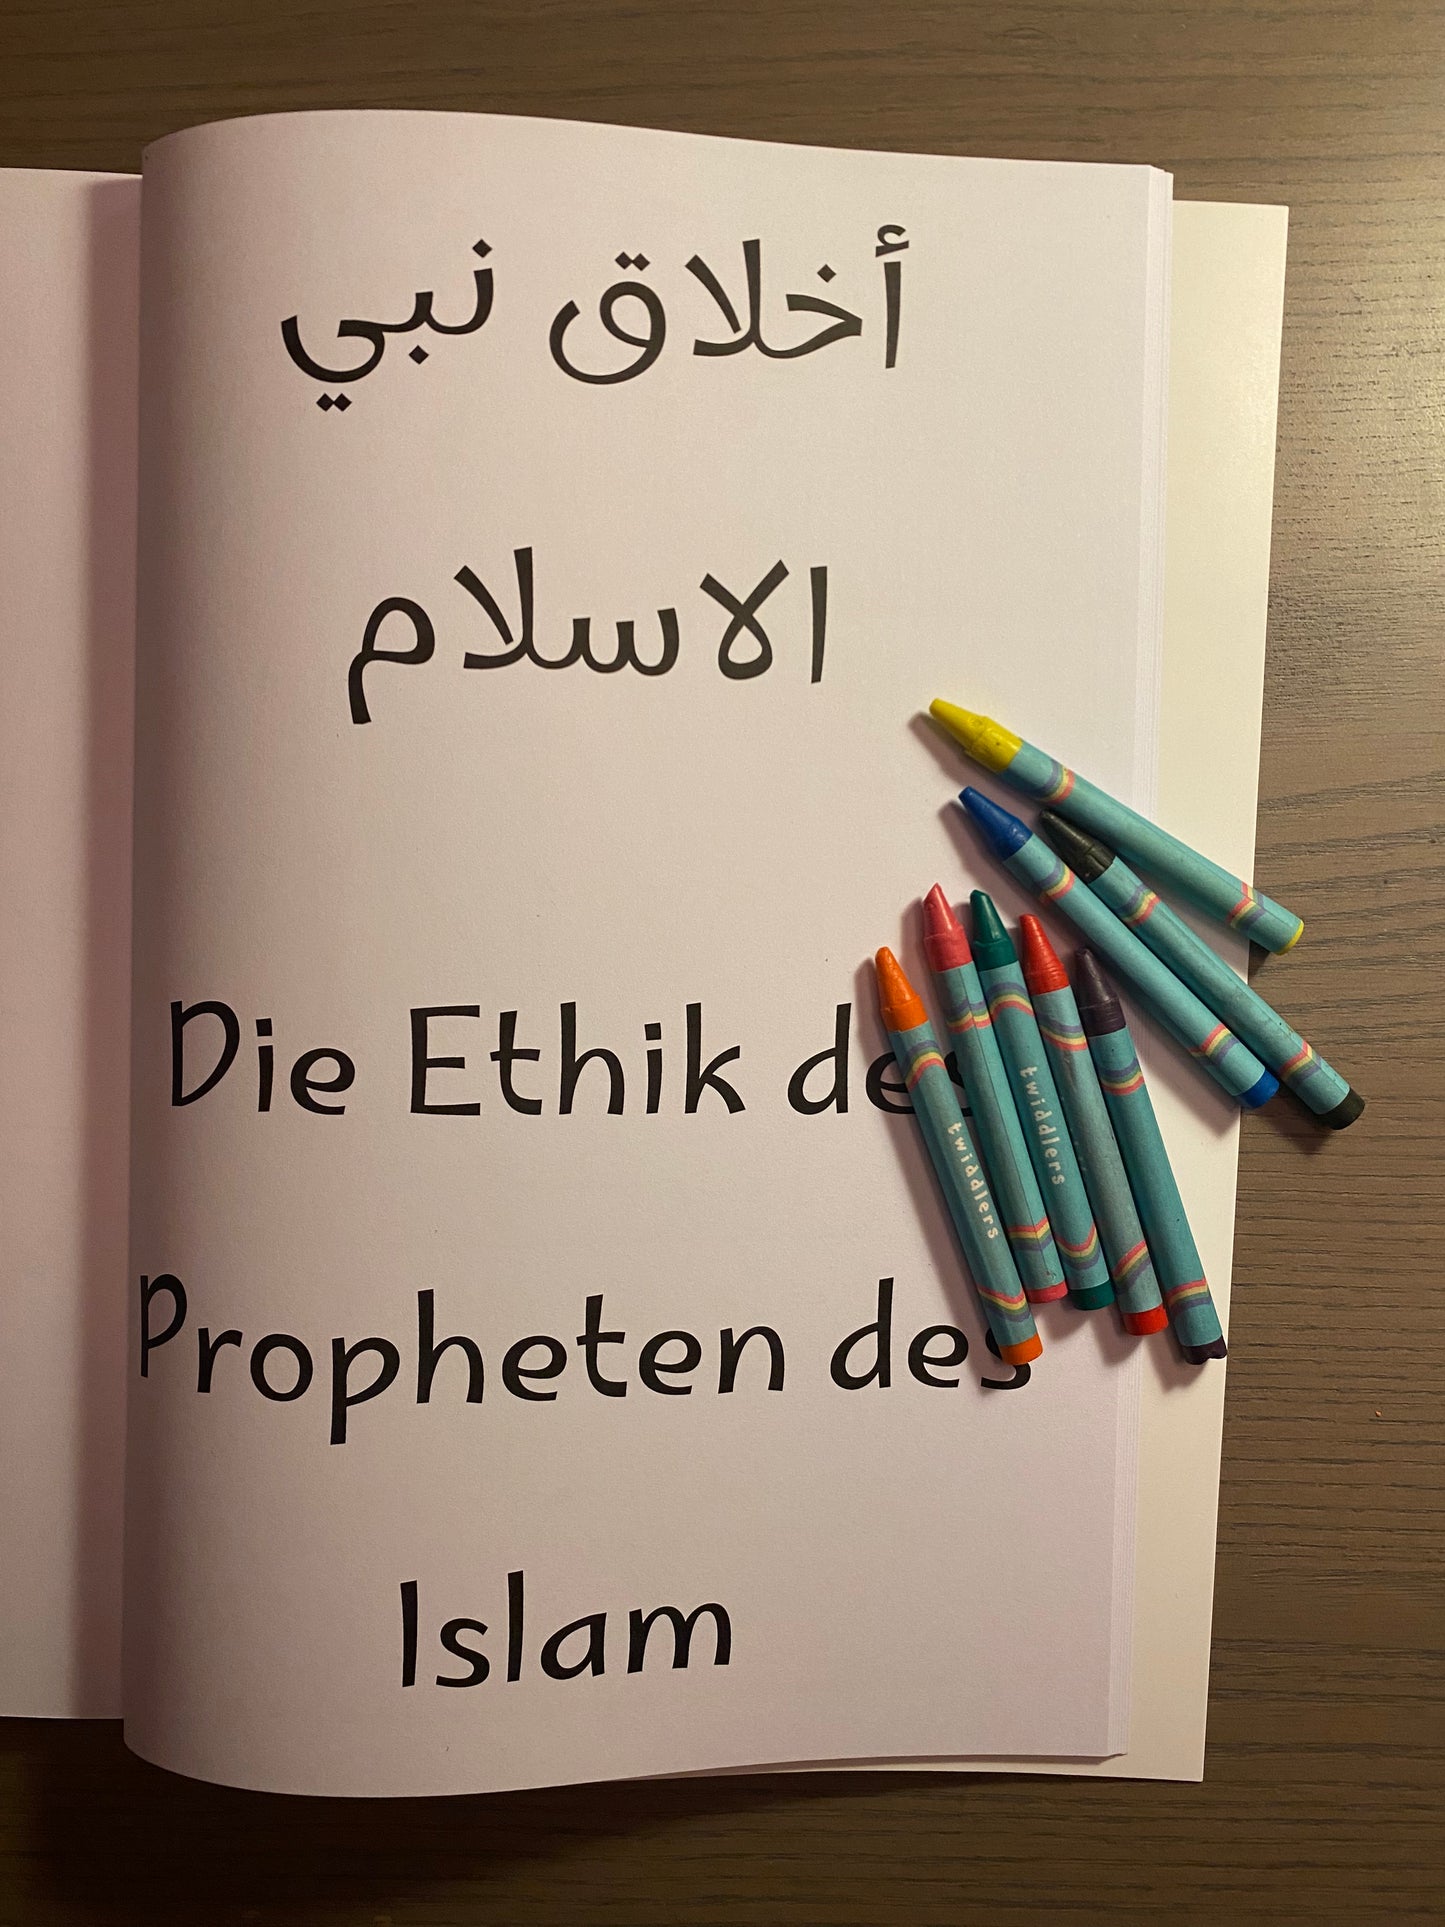 أخلاق نبي
الاسلام
Die Ethik des
Propheten des
Islam
twiddlers
twiddlers